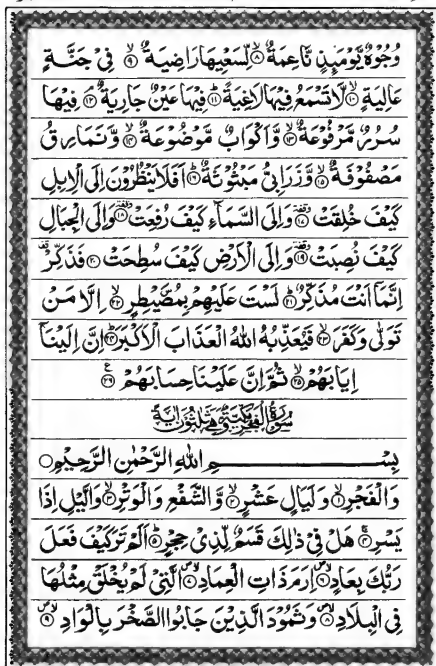 وُجُوْهٌ يَّوْمَىِٕذٍ نَّاعِمَةٌۙ۝۸ لِّسَعْيِهَا رَاضِيَةٌۙ۝۹ فِيْ جَنَّةٍ
عَالِيَةٍۙ۝۱۰ لَّا تَسْمَعُ فِيْهَا لَاغِيَةًؕ۝۱۱ فِيْهَا عَيْنٌ جَارِيَةٌۘ۝۱۲ فِيْهَا
سُرُرٌ مَّرْفُوْعَةٌۙ۝۱۳ وَّاَكْوَابٌ مَّوْضُوْعَةٌۙ۝۱۴ وَّنَمَارِقُ
مَصْفُوْفَةٌۙ۝۱۵ وَّزَرَابِيُّ مَبْثُوْثَةٌؕ۝۱۶ اَفَلَا يَنْظُرُوْنَ اِلَى الْاِبِلِ
كَيْفَ خُلِقَتْࣞ۝۱۷ وَاِلَى السَّمَآءِ كَيْفَ رُفِعَتْࣞ۝۱۸ وَاِلَى الْجِبَالِ
كَيْفَ نُصِبَتْࣞ۝۱۹ وَاِلَى الْاَرْضِ كَيْفَ سُطِحَتْࣞ۝۲۰ فَذَكِّرْؕ
اِنَّمَاۤ اَنْتَ مُذَكِّرٌؕ۝۲۱ لَسْتَ عَلَيْهِمْ بِمُصَۜيْطِرٍۙ۝۲۲ اِلَّا مَنْ
تَوَلّٰى وَكَفَرَۙ۝۲۳ فَيُعَذِّبُهُ اللّٰهُ الْعَذَابَ الْاَكْبَرَؕ۝۲۴ اِنَّ اِلَيْنَاۤ
اِيَابَهُمْۙ۝۲۵ ثُمَّ اِنَّ عَلَيْنَا حِسَابَهُمْ۝۲۶ ع
سُوْرَةُ الْفَجْرِ مَكِّيَّةٌ وَّهِيَ ثَلٰثُوْنَ اٰيَةً
بِسْمِ اللّٰهِ الرَّحْمٰنِ الرَّحِيْمِ۝
وَالْفَجْرِۙ۝۱ وَلَيَالٍ عَشْرٍۙ۝۲ وَّالشَّفْعِ وَالْوَتْرِۙ۝۳ وَالَّيْلِ اِذَا
يَسْرِۚ۝۴ هَلْ فِيْ ذٰلِكَ قَسَمٌ لِّذِيْ حِجْرٍؕ۝۵ اَلَمْ تَرَ كَيْفَ فَعَلَ
رَبُّكَ بِعَادٍ۝۶ اِرَمَ ذَاتِ الْعِمَادِ۝۷ الَّتِيْ لَمْ يُخْلَقْ مِثْلُهَا
فِي الْبِلَادِ۝۸ وَثَمُوْدَ الَّذِيْنَ جَابُوا الصَّخْرَ بِالْوَادِ۝۹